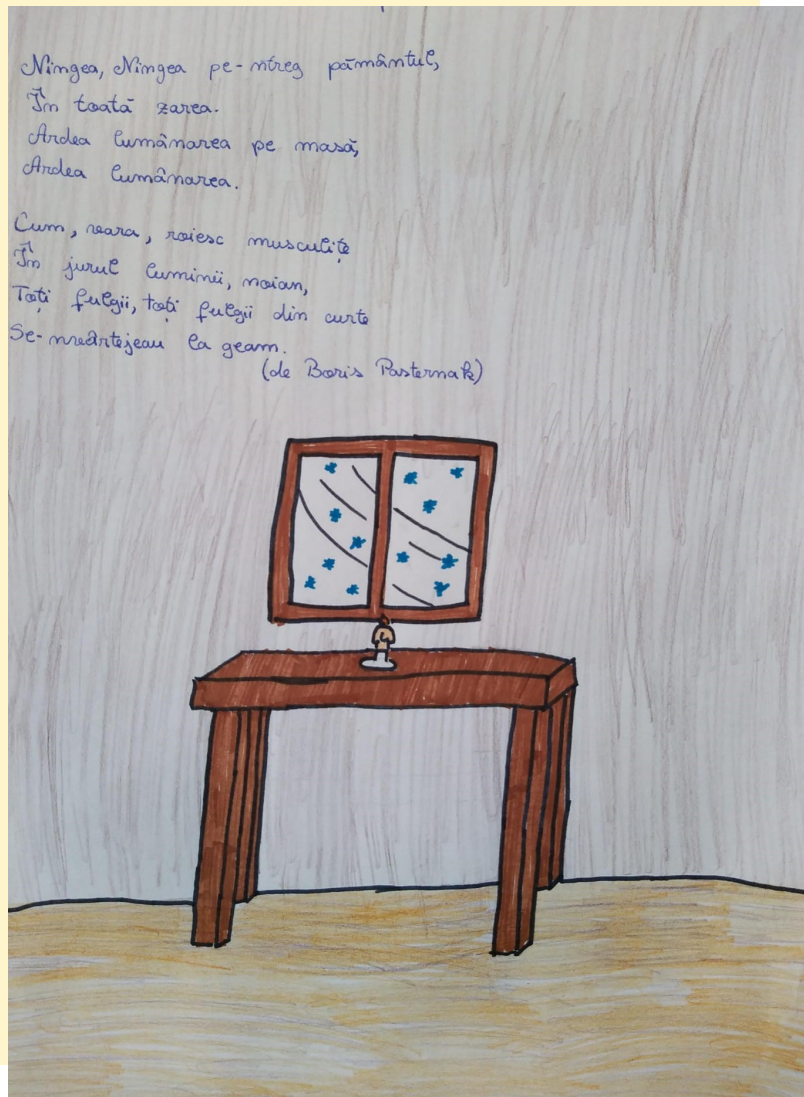 Ningea, Ningea pe-ntreg pământul,
În toată zarea.
Ardea lumânarea pe masă,
Ardea lumânarea.
Cum, vara, roiesc musculițe
În jurul luminii, noian,
Toți fulgii, toți fulgii din curte
Se-nvârtejeau la geam.
(de Boris Pasternak)